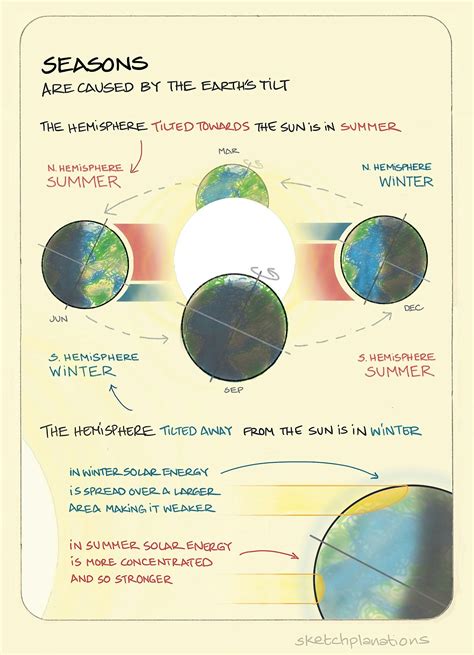 SEASONS
ARE CAUSED BY THE EARTH'S TILT
THE HEMISPHERE TILTED TOWARDS THE SUN IS IN SUMMER
MAR
N. HEMISPHERE
SUMMER
N. HEMISPHERE
WINTER
JUN
DEC
SEP
S. HEMISPHERE
WINTER
S. HEMISPHERE
SUMMER
THE HEMISPHERE TILTED AWAY FROM THE SUN IS IN WINTER
IN WINTER SOLAR ENERGY
IS SPREAD OVER A LARGER
AREA MAKING IT WEAKER
IN SUMMER SOLAR ENERGY
IS MORE CONCENTRATED
AND SO STRONGER
sketchplanations